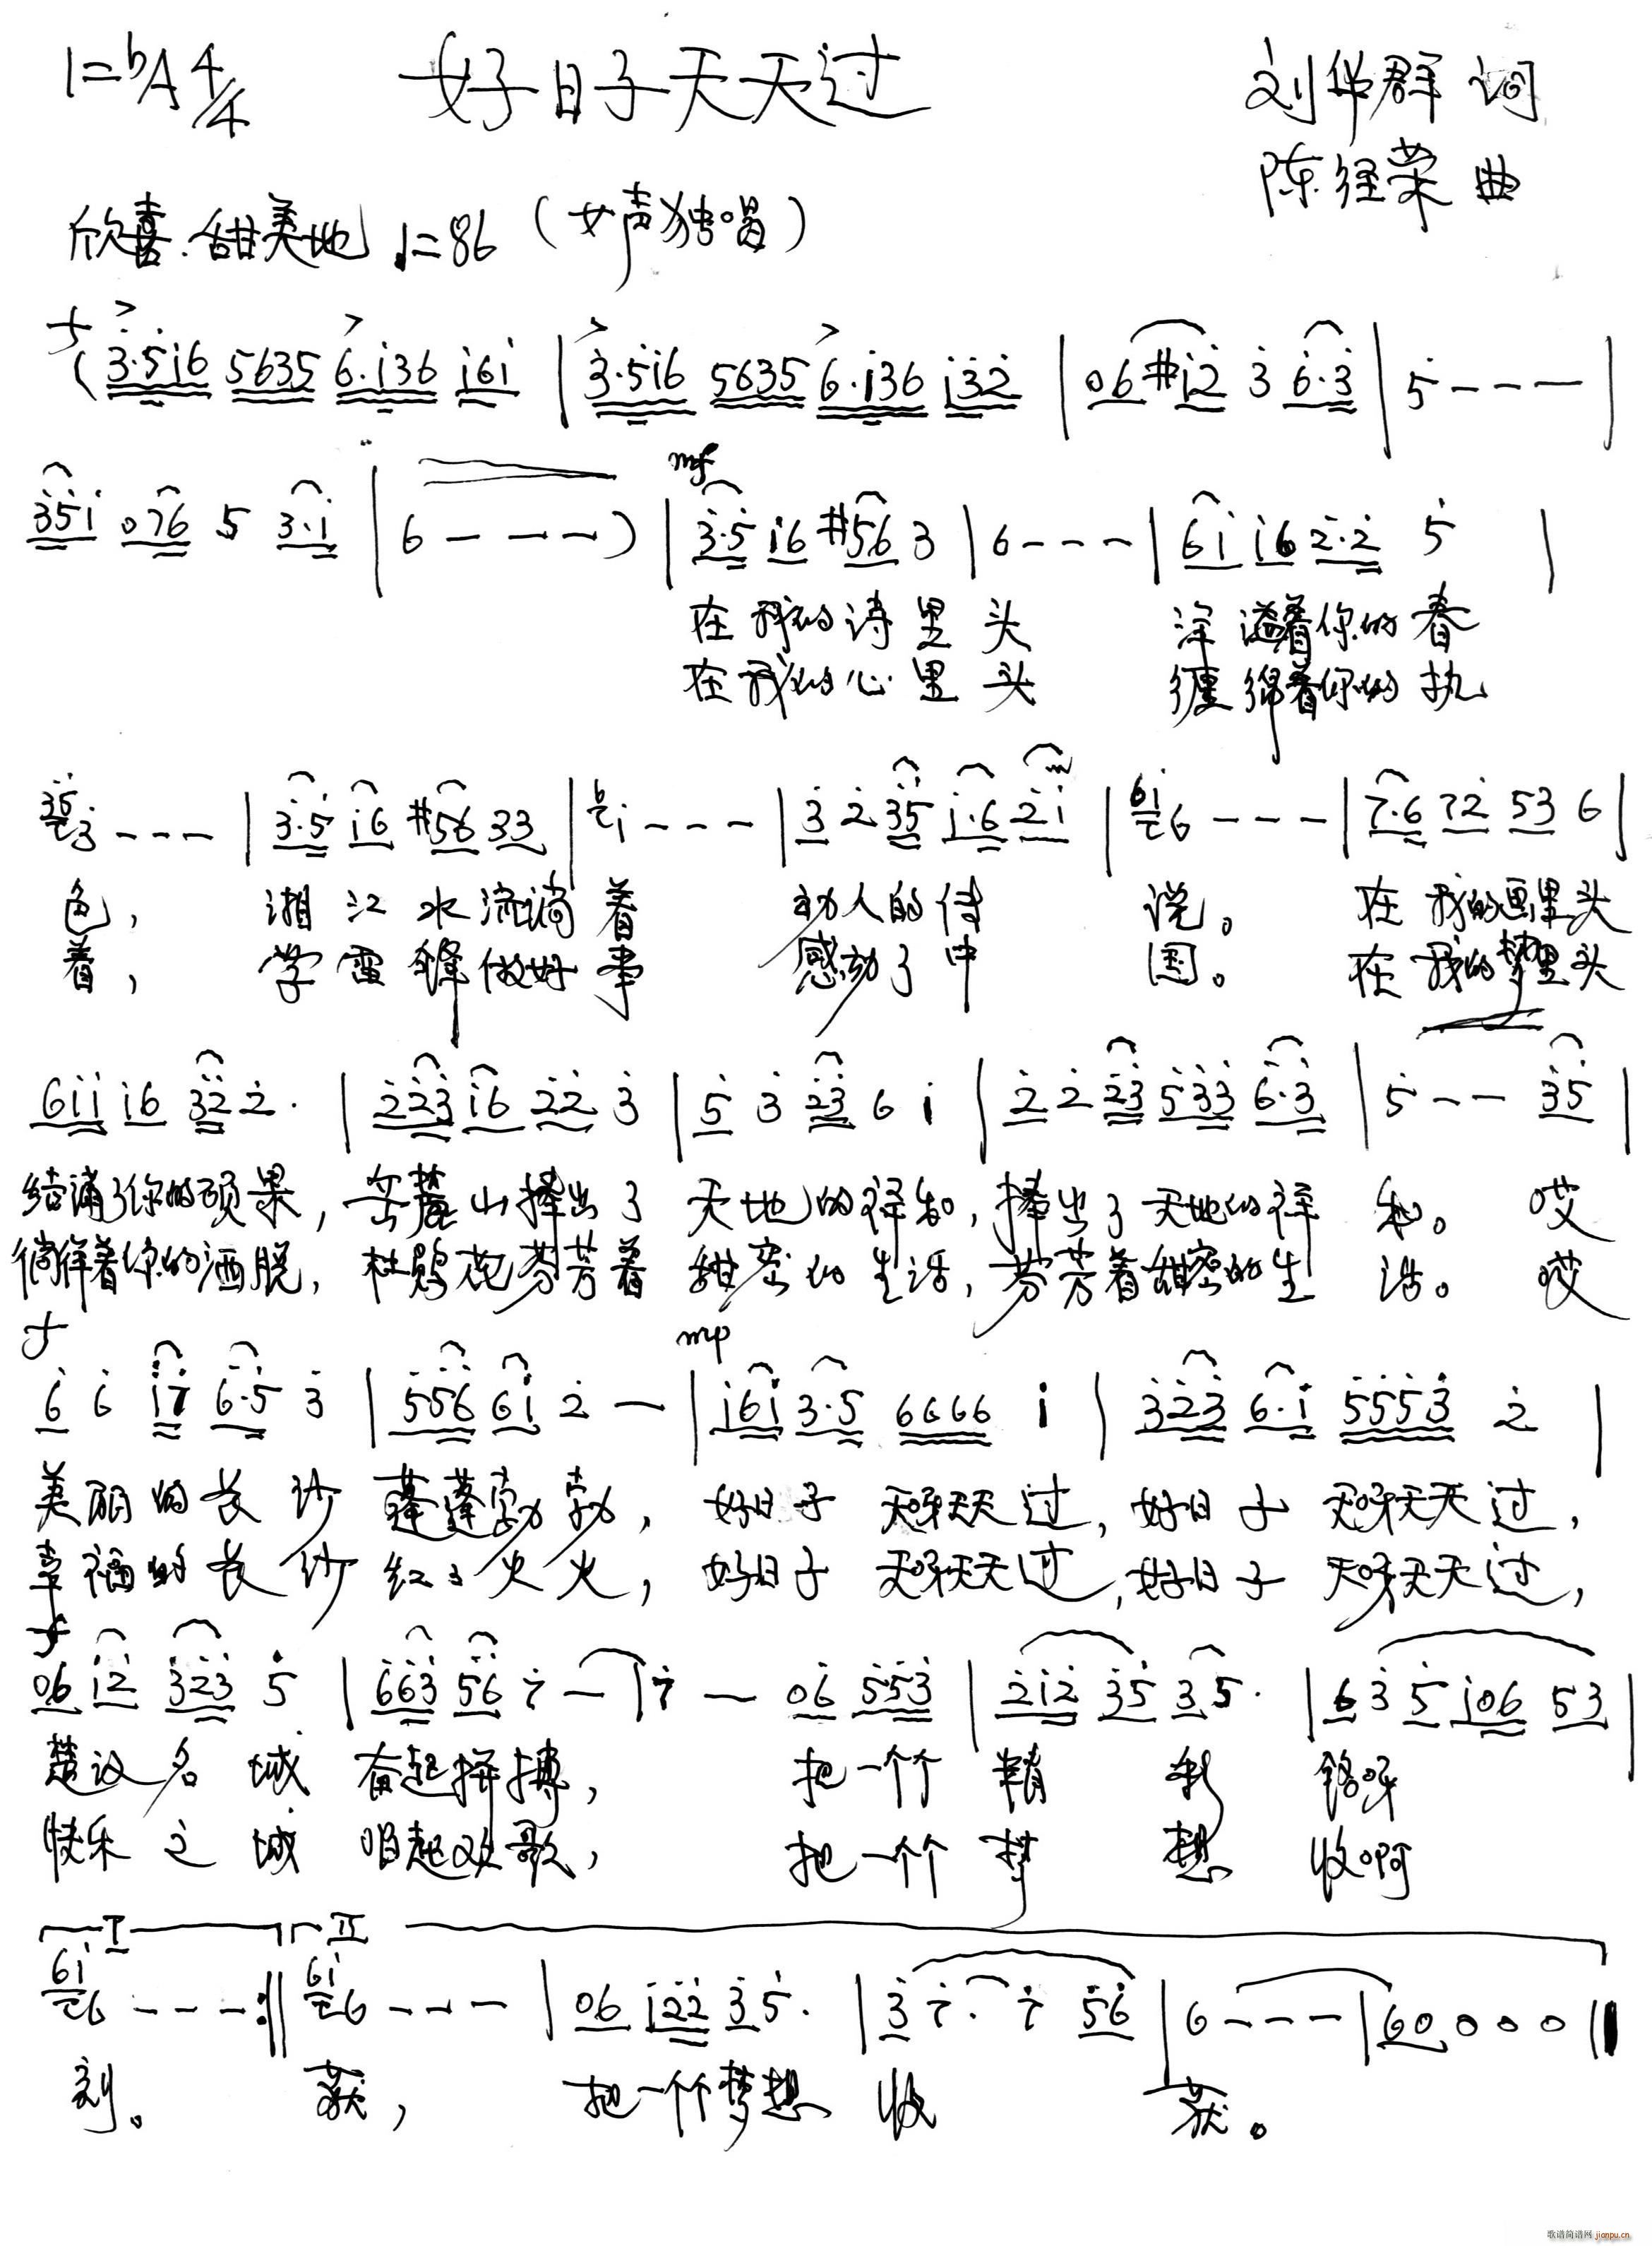 1=bA 4/4 好日子天天过 刘华群 词
陈经荣 曲
欣喜.甜美地 ♩=86 (女声独唱)
f
(3·5i6 5635 6·i36 i6i | 3·5i6 5635 6·i36 i32 | 06 #i2 3 6·3 | 5 - - - |
mf
35i 076 5 3·i | 6 - - - ) | 3·5 i6 #56 3 | 6 - - - | 6i i6 2·2 5 |
在 我的 诗 里 头 洋溢着你的 春
在 我的 心 里 头 缠绵着你的 执
35 3 - - - | 3·5 i6 #56 33 | 6 i - - - | 3 2 35 i·6 2i | 6i 6 - - - | 7·6 72 53 6 |
色, 湘 江 水 流淌 着 动人的传 说。 在 我的画里头
着, 学 雷 锋 做好 事 感动了中 国。 在 我的梦里头
6ii i6 32 2· | 223 i6 22 3 | 5 3 23 6 i | 2 2 23 533 6·3 | 5 - - 35 |
结满了你的硕果, 岳麓山捧出了 天地的祥和, 捧出了天地的祥 和。 哎
徜徉着你的洒脱, 杜鹃花芬芳着 甜蜜的生活, 芬芳着甜蜜的生 活。 哎
f mp
6 6 i7 6·5 3 | 556 6i 2 - | i6i 3·5 6666 i | 323 6·i 5553 2 |
美丽的长沙 蓬蓬勃勃, 好日子 天呀天天过, 好日子 天呀天天过,
幸福的长沙 红红火火, 好日子 天呀天天过, 好日子 天呀天天过,
f
06 i2 323 5 | 663 56 7 - | 7 - 06 553 | 2i2 35 35· | 6 3 5 i06 53 |
楚汉名城 奋起拼搏, 把一个个 精 彩 铭呀
快乐之城 唱起欢歌, 把一个个 梦 想 收啊
I II
6i 6 - - - :|| 6i 6 - - - | 06 i22 3 5· | 3 7· 7 56 | 6 - - - | 60 0 0 0 ||
刻。 获, 把一个个梦想 收 获。
歌谱简谱网 jianpu.cn